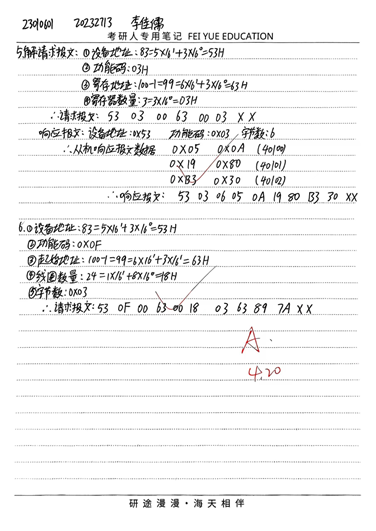 23010601 20232713 李佳儒
考研人专用笔记 FEI YUE EDUCATION
5.解:请求报文:①设备地址:83=5×16¹+3×16⁰=53H
②功能码:03H
③寄存地址:100-1=99=6×16¹+3×16⁰=63H
④寄存器数量:3=3×16⁰=03H
∴请求报文:53 03 00 63 00 03 XX
响应报文:设备地址:0x53 功能码:0X03 字节数:6
∴从机响应报文数据 0X05 0X0A (40100)
0X19 0X80 (40101)
0XB3 0X30 (40102)
∴响应报文: 53 03 06 05 0A 19 80 B3 30 XX
6.①设备地址:83=5×16¹+3×16⁰=53H
②功能码:0X0F
③起始地址:100-1=99=6×16¹+3×16⁰=63H
④线圈数量:24=1×16¹+8×16⁰=18H
⑤字节数:0X03
∴请求报文:53 0F 00 63 00 18 03 63 89 7A XX
A.
4.20
研途漫漫·海天相伴